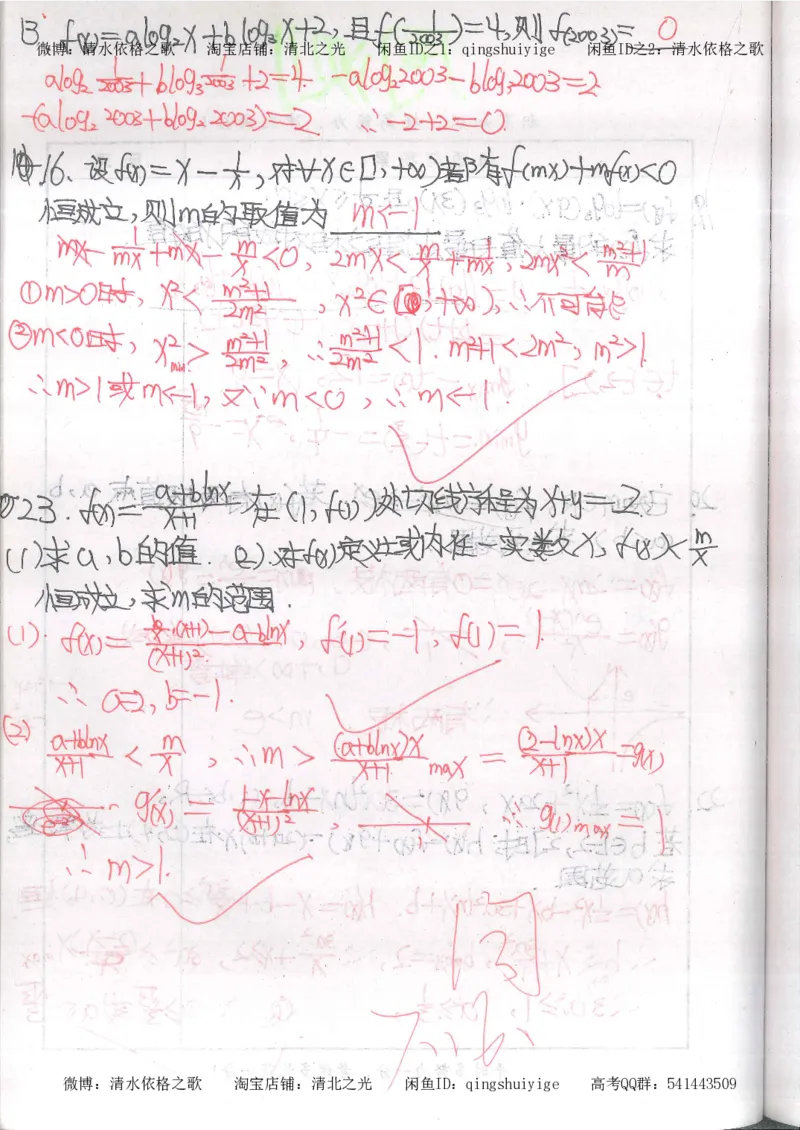 13. f(x)=alog₂x+blog₃x+2,且f(1/2003)=4,则f(2003)= 0
微博:清水依格之歌 淘宝店铺:清北之光 闲鱼ID之1:qingshuiyige 闲鱼ID之2:清水依格之歌
alog₂ 1/2003+blog₃ 1/2003+2=4. -alog₂2003-blog₃2003=2
-(alog₂2003+blog₂2003)=2. ∴-2+2=0.
16、设f(x)=x-1/x,对∀x∈[1,+∞)都有f(mx)+mf(x)<0
恒成立,则m的取值为 m<-1
mx-1/mx+mx-m/x<0, 2mx<m/x+1/mx, 2mx²<(m²+1)/m
①m>0时, x²<(m²+1)/2m², x²∈[1,+∞),∴不可能
②m<0时, x²min>(m²+1)/2m², ∴(m²+1)/2m²<1. m²+1<2m², m²>1.
∴m>1或m<-1, 又∵m<0, ∴m<-1.
23. f(x)=(a+blnx)/(x+1) 在(1,f(1))处切线方程为x+y=2
(1)求a,b的值. (2).对f(x)定义域内任一实数x, f(x)<m/x
恒成立,求m的范围.
(1). f'(x)=(b/x·(x+1)-a-blnx)/(x+1)², f'(1)=-1, f(1)=1.
∴a=2, b=-1.
(2) (a+blnx)/(x+1)<m/x, ∴m>(a+blnx)x/(x+1) max=(2-lnx)x/(x+1)=g(x)
g'(x)=(1-x-lnx)/(x+1)², ∴g(1)max=1
∴m>1.
阅
微博:清水依格之歌 淘宝店铺:清北之光 闲鱼ID:qingshuiyige 高考QQ群:541443509